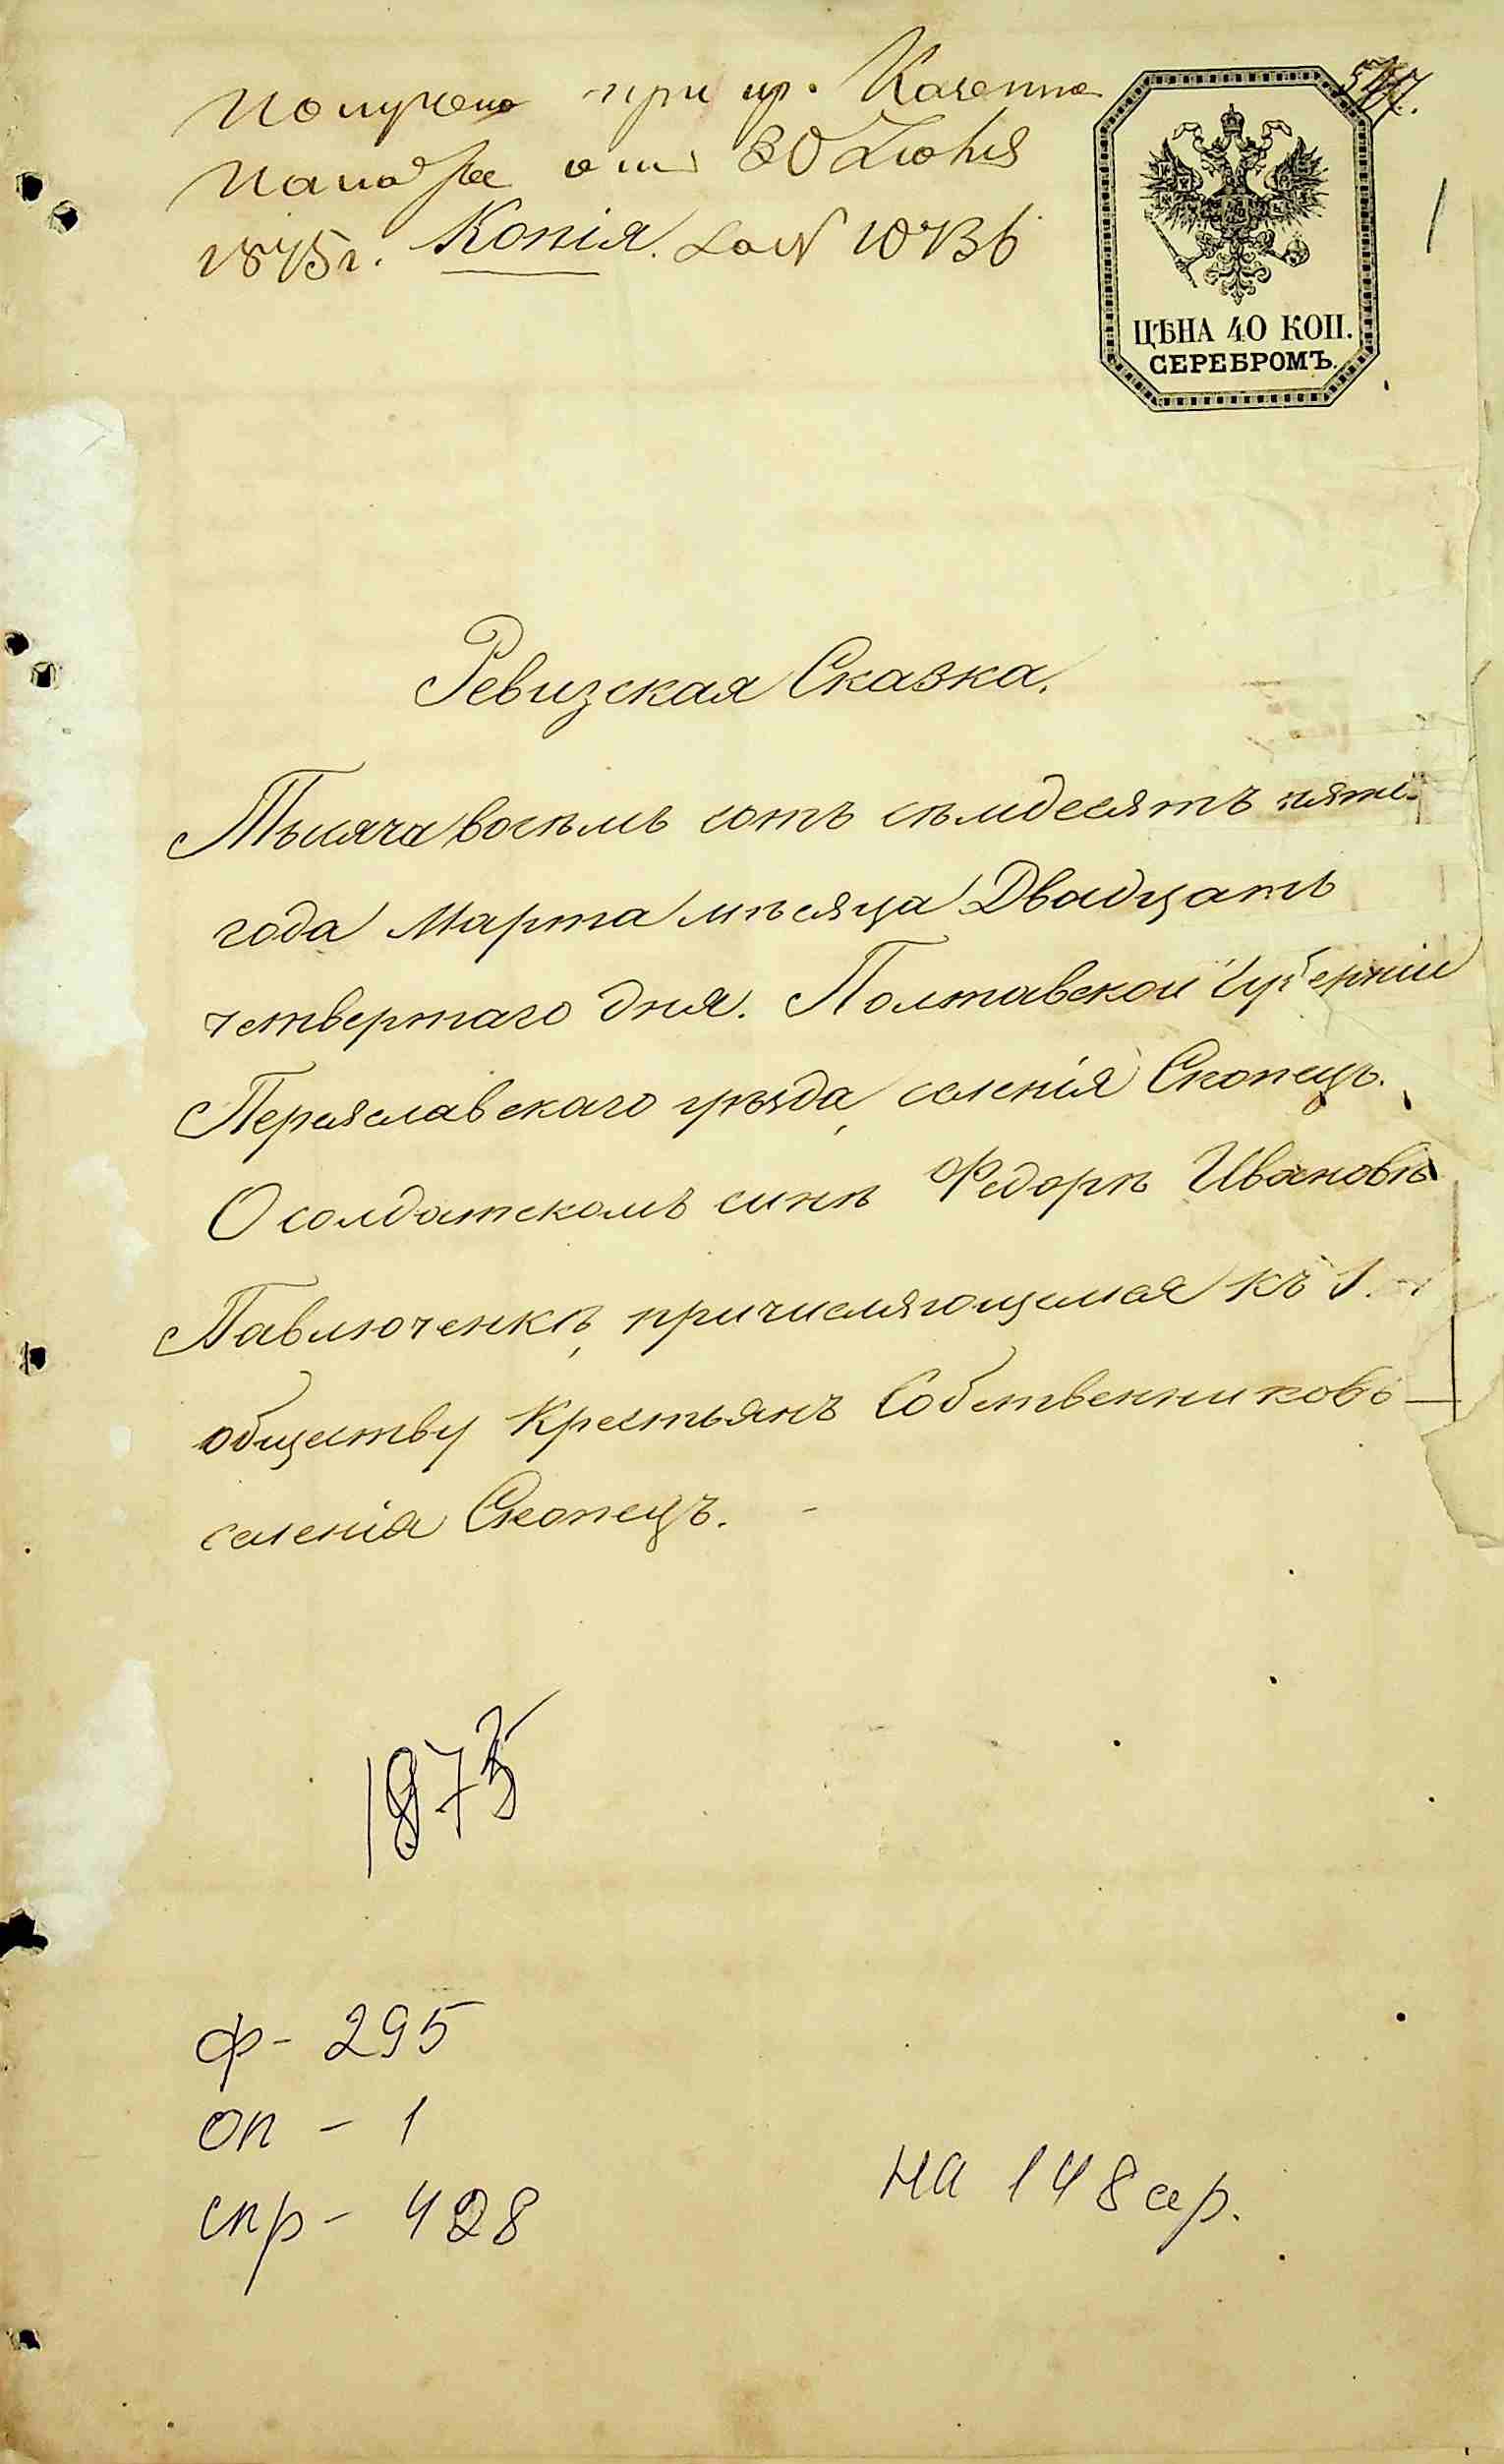 Получено при пр. Казенно
Палаты отъ 30 Іюня
1875 г. Копія. за N 10736
ЦѢНА 40 КОП.
СЕРЕБРОМЪ.
1
Ревизская Сказка.
Тысяча восемь сотъ семдесятъ пята
года Марта мѣсяца Двадцать
четвертаго дня. Полтавской Губерніи
Переяславскаго уѣзда, селенія Скопецъ.
О солдатскомъ синѣ Федорѣ Ивановѣ
Павлюченкѣ, причисляющемся къ 1.
обществу Крестьянъ Собственниковъ
селенія Скопецъ. -
1875
ф - 295
оп - 1
спр - 428
на 148 аер.